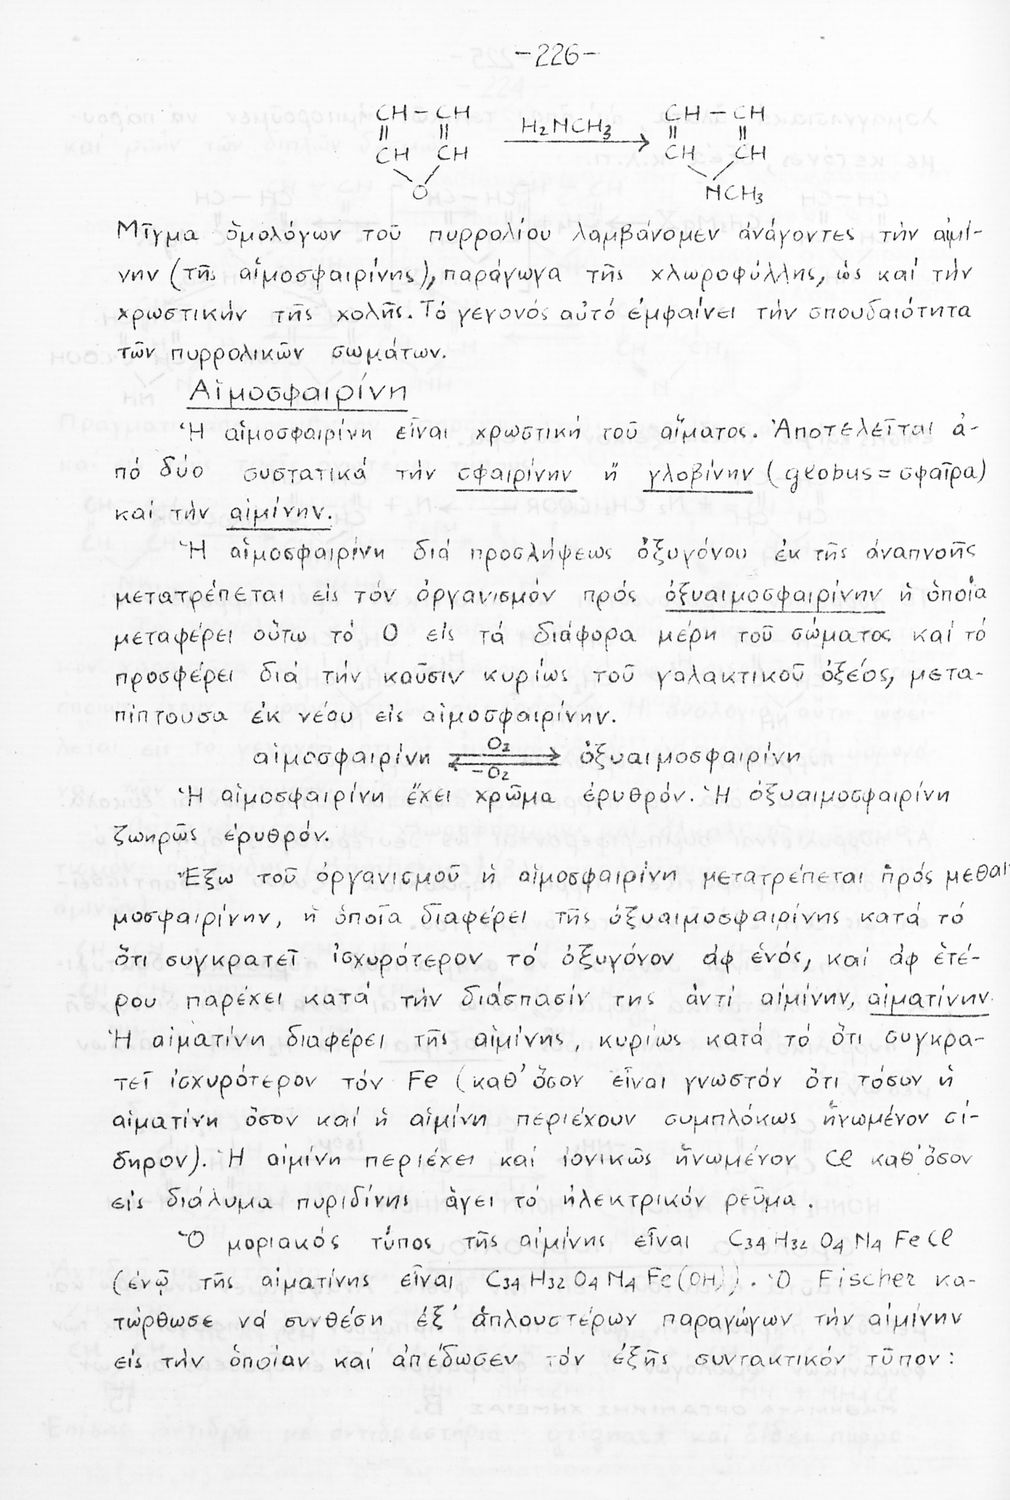 -226-
CH - CH          CH - CH
||     ||   H₂NCH₃   ||     ||
CH   CH   ⟶   CH   CH
O          NCH₃
Μῖγμα ὁμολόγων τοῦ πυρρολίου λαμβάνομεν ἀνάγοντες τήν αἱμί-
νην (τῆς αἱμοσφαιρίνης), παράγωγα τῆς χλωροφύλλης, ὡς καί τήν
χρωστικήν τῆς χολῆς. Τό γεγονός αὐτό ἐμφαίνει τήν σπουδαιότητα
τῶν πυρρολικῶν σωμάτων.
Αἱμοσφαιρίνη
Ἡ αἱμοσφαιρίνη εἶναι χρωστική τοῦ αἵματος. Ἀποτελεῖται ἀ-
πό δύο συστατικά τήν σφαιρίνην ἤ γλοβίνην (globus = σφαῖρα)
καί τήν αἱμίνην.
Ἡ αἱμοσφαιρίνη διά προσλήψεως ὀξυγόνου ἐκ τῆς ἀναπνοῆς
μετατρέπεται εἰς τόν ὀργανισμόν πρός ὀξυαιμοσφαιρίνην ἡ ὁποία
μεταφέρει οὕτω τό O εἰς τά διάφορα μέρη τοῦ σώματος καί τό
προσφέρει διά τήν καῦσιν κυρίως τοῦ γαλακτικοῦ ὀξέος, μετα-
πίπτουσα ἐκ νέου εἰς αἱμοσφαιρίνην.
αἱμοσφαιρίνη ⇌ (O₂ / -O₂) ὀξυαιμοσφαιρίνη
Ἡ αἱμοσφαιρίνη ἔχει χρῶμα ἐρυθρόν. Ἡ ὀξυαιμοσφαιρίνη
ζωηρῶς ἐρυθρόν.
Ἔξω τοῦ ὀργανισμοῦ ἡ αἱμοσφαιρίνη μετατρέπεται πρός μεθαι
μοσφαιρίνην, ἡ ὁποῖα διαφέρει τῆς ὀξυαιμοσφαιρίνης κατά τό
ὅτι συγκρατεῖ ἰσχυρότερον τό ὀξυγόνον ἀφ ἑνός, καί ἀφ ἑτέ-
ρου παρέχει κατά τήν διάσπασίν της ἀντί αἱμίνην, αἱματίνην.
Ἡ αἱματίνη διαφέρει τῆς αἱμίνης, κυρίως κατά τό ὅτι συγκρα-
τεῖ ἰσχυρότερον τόν Fe (καθ' ὅσον εἶναι γνωστόν ὅτι τόσον ἡ
αἱματίνη ὅσον καί ἡ αἱμίνη περιέχουν συμπλόκως ἡνωμένον σί-
δηρον). Ἡ αἱμίνη περιέχει καί ἰονικῶς ἡνωμένον Cl καθ' ὅσον
εἰς διάλυμα πυριδίνης ἄγει τό ἠλεκτρικόν ρεῦμα.
Ὁ μοριακός τύπος τῆς αἱμίνης εἶναι C₃₄H₃₂O₄N₄FeCl
(ἐνῷ τῆς αἱματίνης εἶναι C₃₄H₃₂O₄N₄Fe(OH)). Ὁ Fischer κα-
τώρθωσε νά συνθέση ἐξ' ἁπλουστέρων παραγώγων τήν αἱμίνην
εἰς τήν ὁποίαν καί ἀπέδωσεν τόν ἑξῆς συντακτικόν τῦπον: